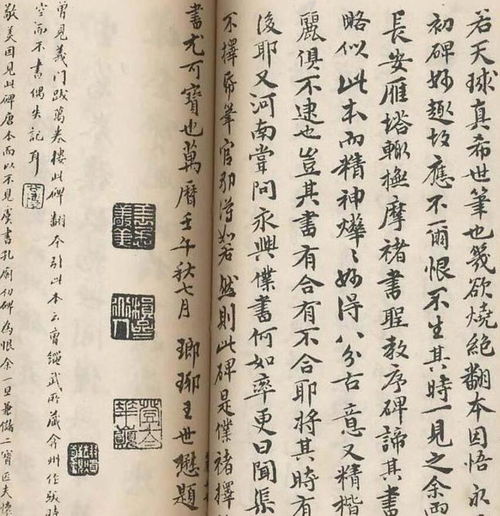 若天球真希世筆也幾欲燒絶翻本因悟永
初碑妙趣故應不爾恨不生其時一見之余西
長安雁塔輙撫摩褚書聖教序碑諦其書
略似此本而精神燁〻妙得八分古意又精楷
麗俱不逮也豈其書有合有不合耶將其時有
後耶又河南嘗問永興僕書何如率更曰聞集
不擇帋筆官那得如若然則此碑是僕褚擇
書尤可寶也萬曆壬午秋七月 瑯琊王世懋題
曾見義門跋萬卷樓此碑翻本引此本云曾繼武所藏弇州作跋時
空而不書偶失記耳
敬美因見此碑唐本而以不見虞書孔廟初碑為恨余一旦兼備二寶